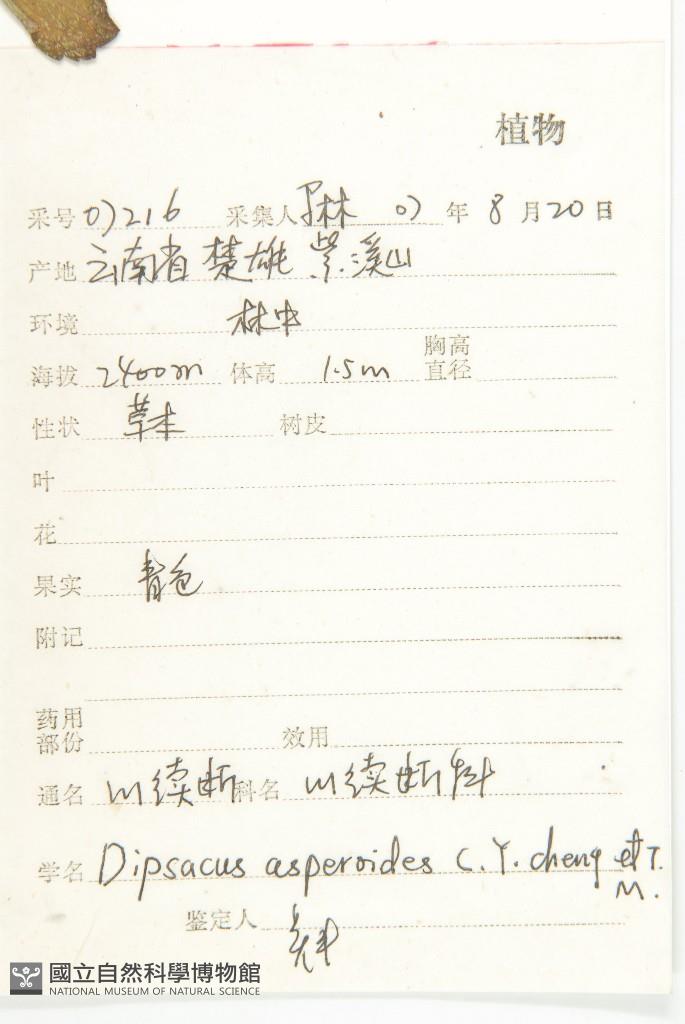 植物
采号 07216 采集人 林 07 年 8 月 20 日
产地 云南省楚雄紫溪山
环境 林中
海拔 2400m 体高 1.5m 胸高直径
性状 草本 树皮
叶
花
果实 青色
附记
药用部份 效用
通名 川续断 科名 川续断科
学名 Dipsacus asperoides C.Y. cheng et T.
M.
鉴定人
國立自然科學博物館
NATIONAL MUSEUM OF NATURAL SCIENCE